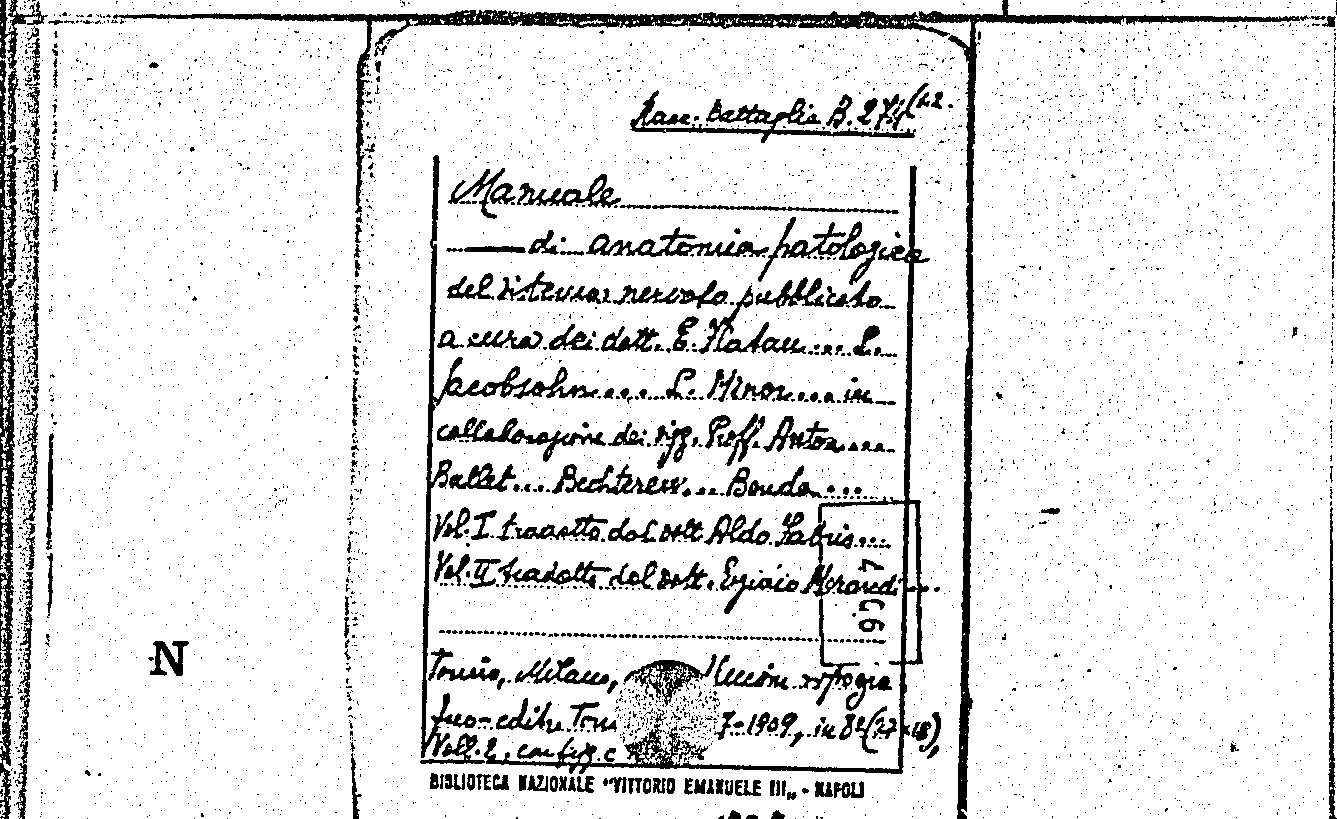 Racc. Battaglia B. 274(1-2.
Manuale
di anatomia patologica
del sistema nervoso pubblicato
a cura dei dott. E. Flatau.... L.
Jacobsohn.... L. Minor.... in
collaborazione dei sigg. Proff. Anton....
Ballet.... Bechterew... Bonda....
Vol. I tradotto dal dott Aldo Fabris...
Vol. II tradotto dal dott. Egidio Morandi...
Torino, Milano,
fico-editr. 7-1909, in 8º(27×18),
Voll. 2, con fig.
N
BIBLIOTECA NAZIONALE "VITTORIO EMANUELE III„ - NAPOLI